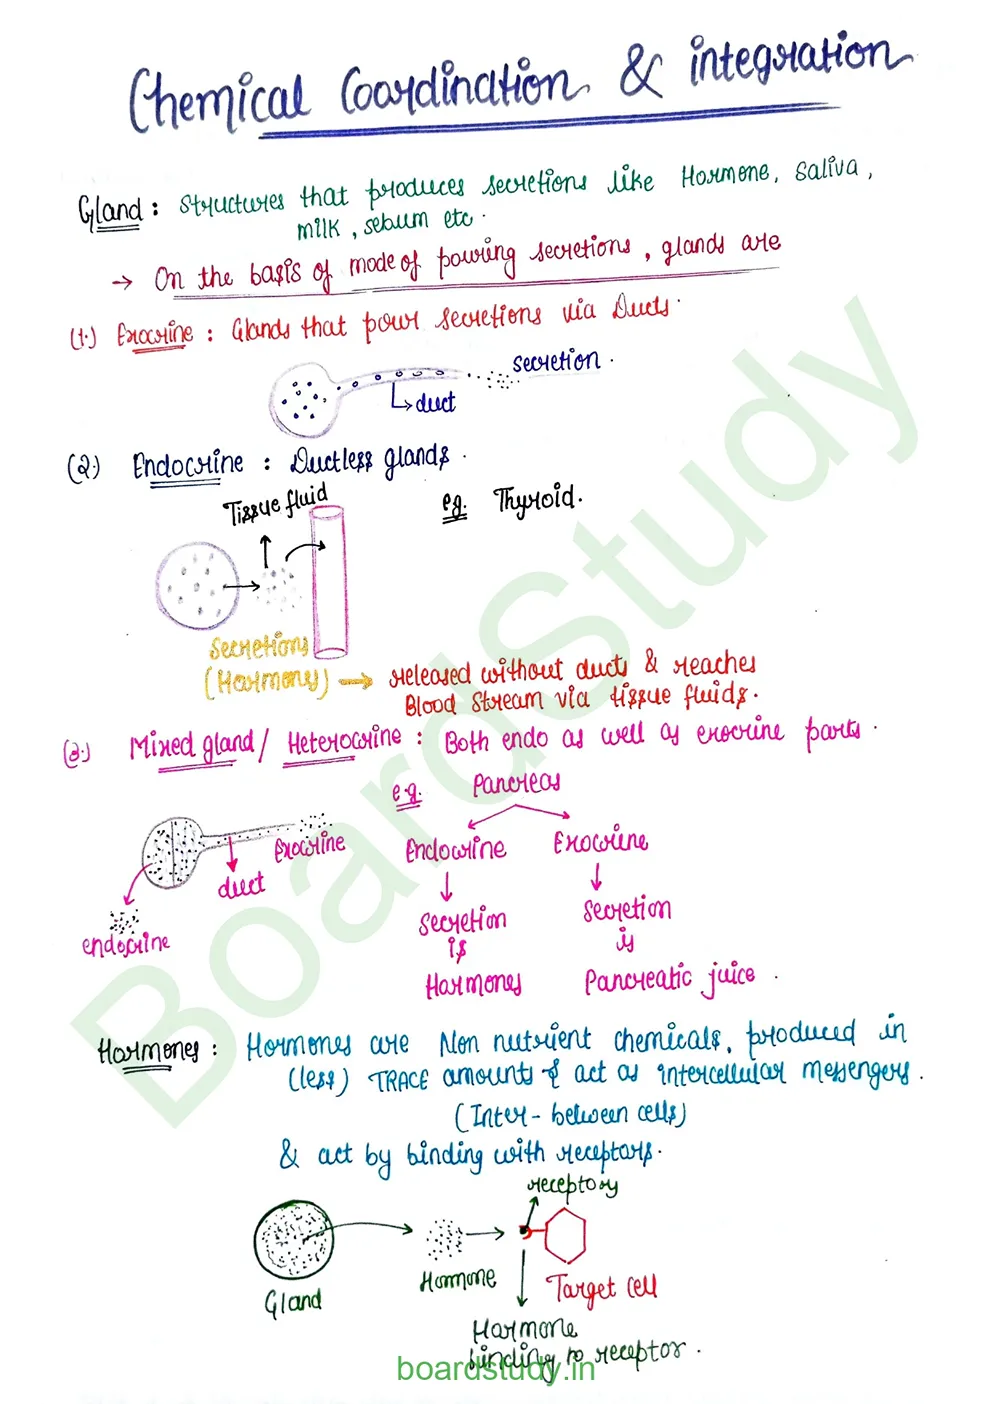 Chemical Coordination & integration
Gland : Structures that produces secretions like Hormone, Saliva,
milk, sebum etc.
→ On the basis of mode of pouring secretions, glands are
(1.) Exocrine : Glands that pour secretions via Ducts.
secretion.
duct
(2.) Endocrine : Ductless glands.
Tissue fluid
eg. Thyroid.
Secretions
(Harmony) → released without ducts & reaches
Blood Stream via tissue fluids.
(3.) Mixed gland / Heterocrine : Both endo as well as exocrine parts.
e.g. Pancreas
Exocrine
duct
endocrine
Endocrine Exocrine
Secretion Secretion
is is
Harmones Pancreatic juice.
Harmones : Hormones are Non nutrient chemicals, produced in
(less) TRACE amounts & act as intercellular messengers.
(Inter - between cells)
& act by binding with receptors.
receptory
Gland
Harmone
Target cell
Harmone
binding to receptor.
BoardStudy
boardstudy.in